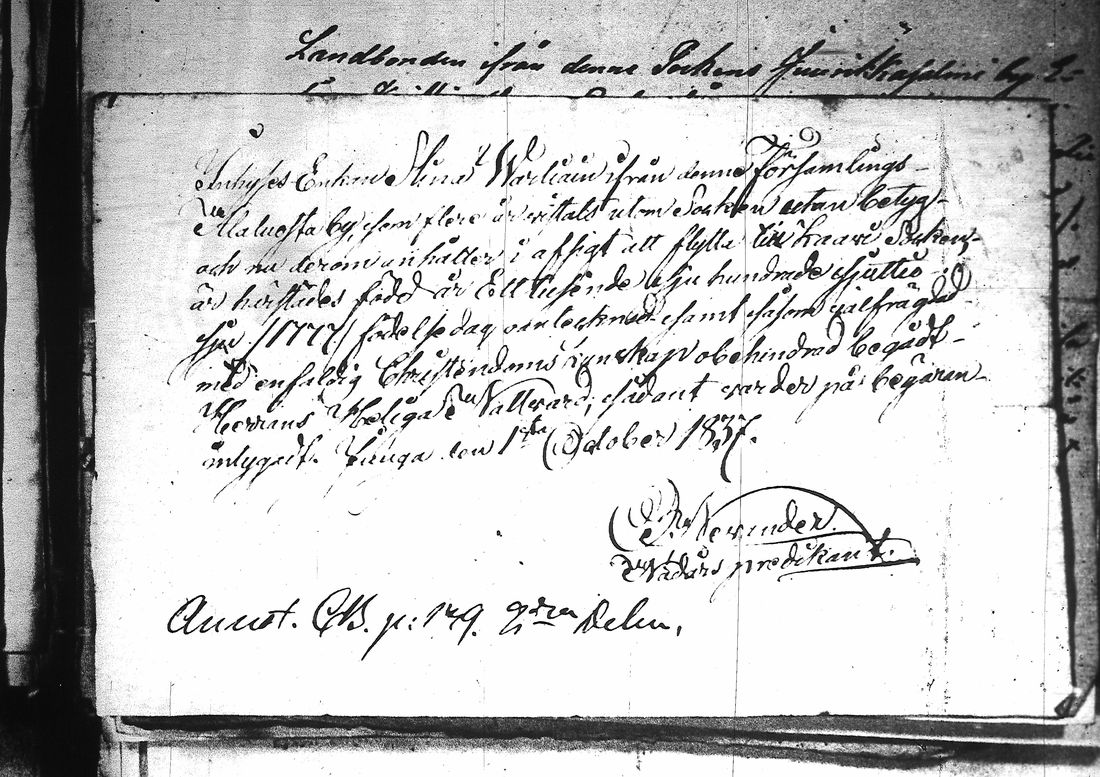 Landbonden ifrån denne Sockens by
Inhyses Enkan Stina ifrån denne Församlings
by, som flere år vistats utom Socken utan betyg
och nu derom anhåller i afsigt att flytta till Socken
är härstädes född år Ett tusende sju hundrade sjuttio
sju /1777/ födelsedag samt såsom sjelfrägdad
med enfaldig Christendoms Kunskap obehindrad begådt
Herrans Heliga Nattvard, sådant varder på begäran
intygadt. den 1sta October 1837.
Nerander.
Wadårs predikant.
Annot. CB. p: 149. 2dra Delen.